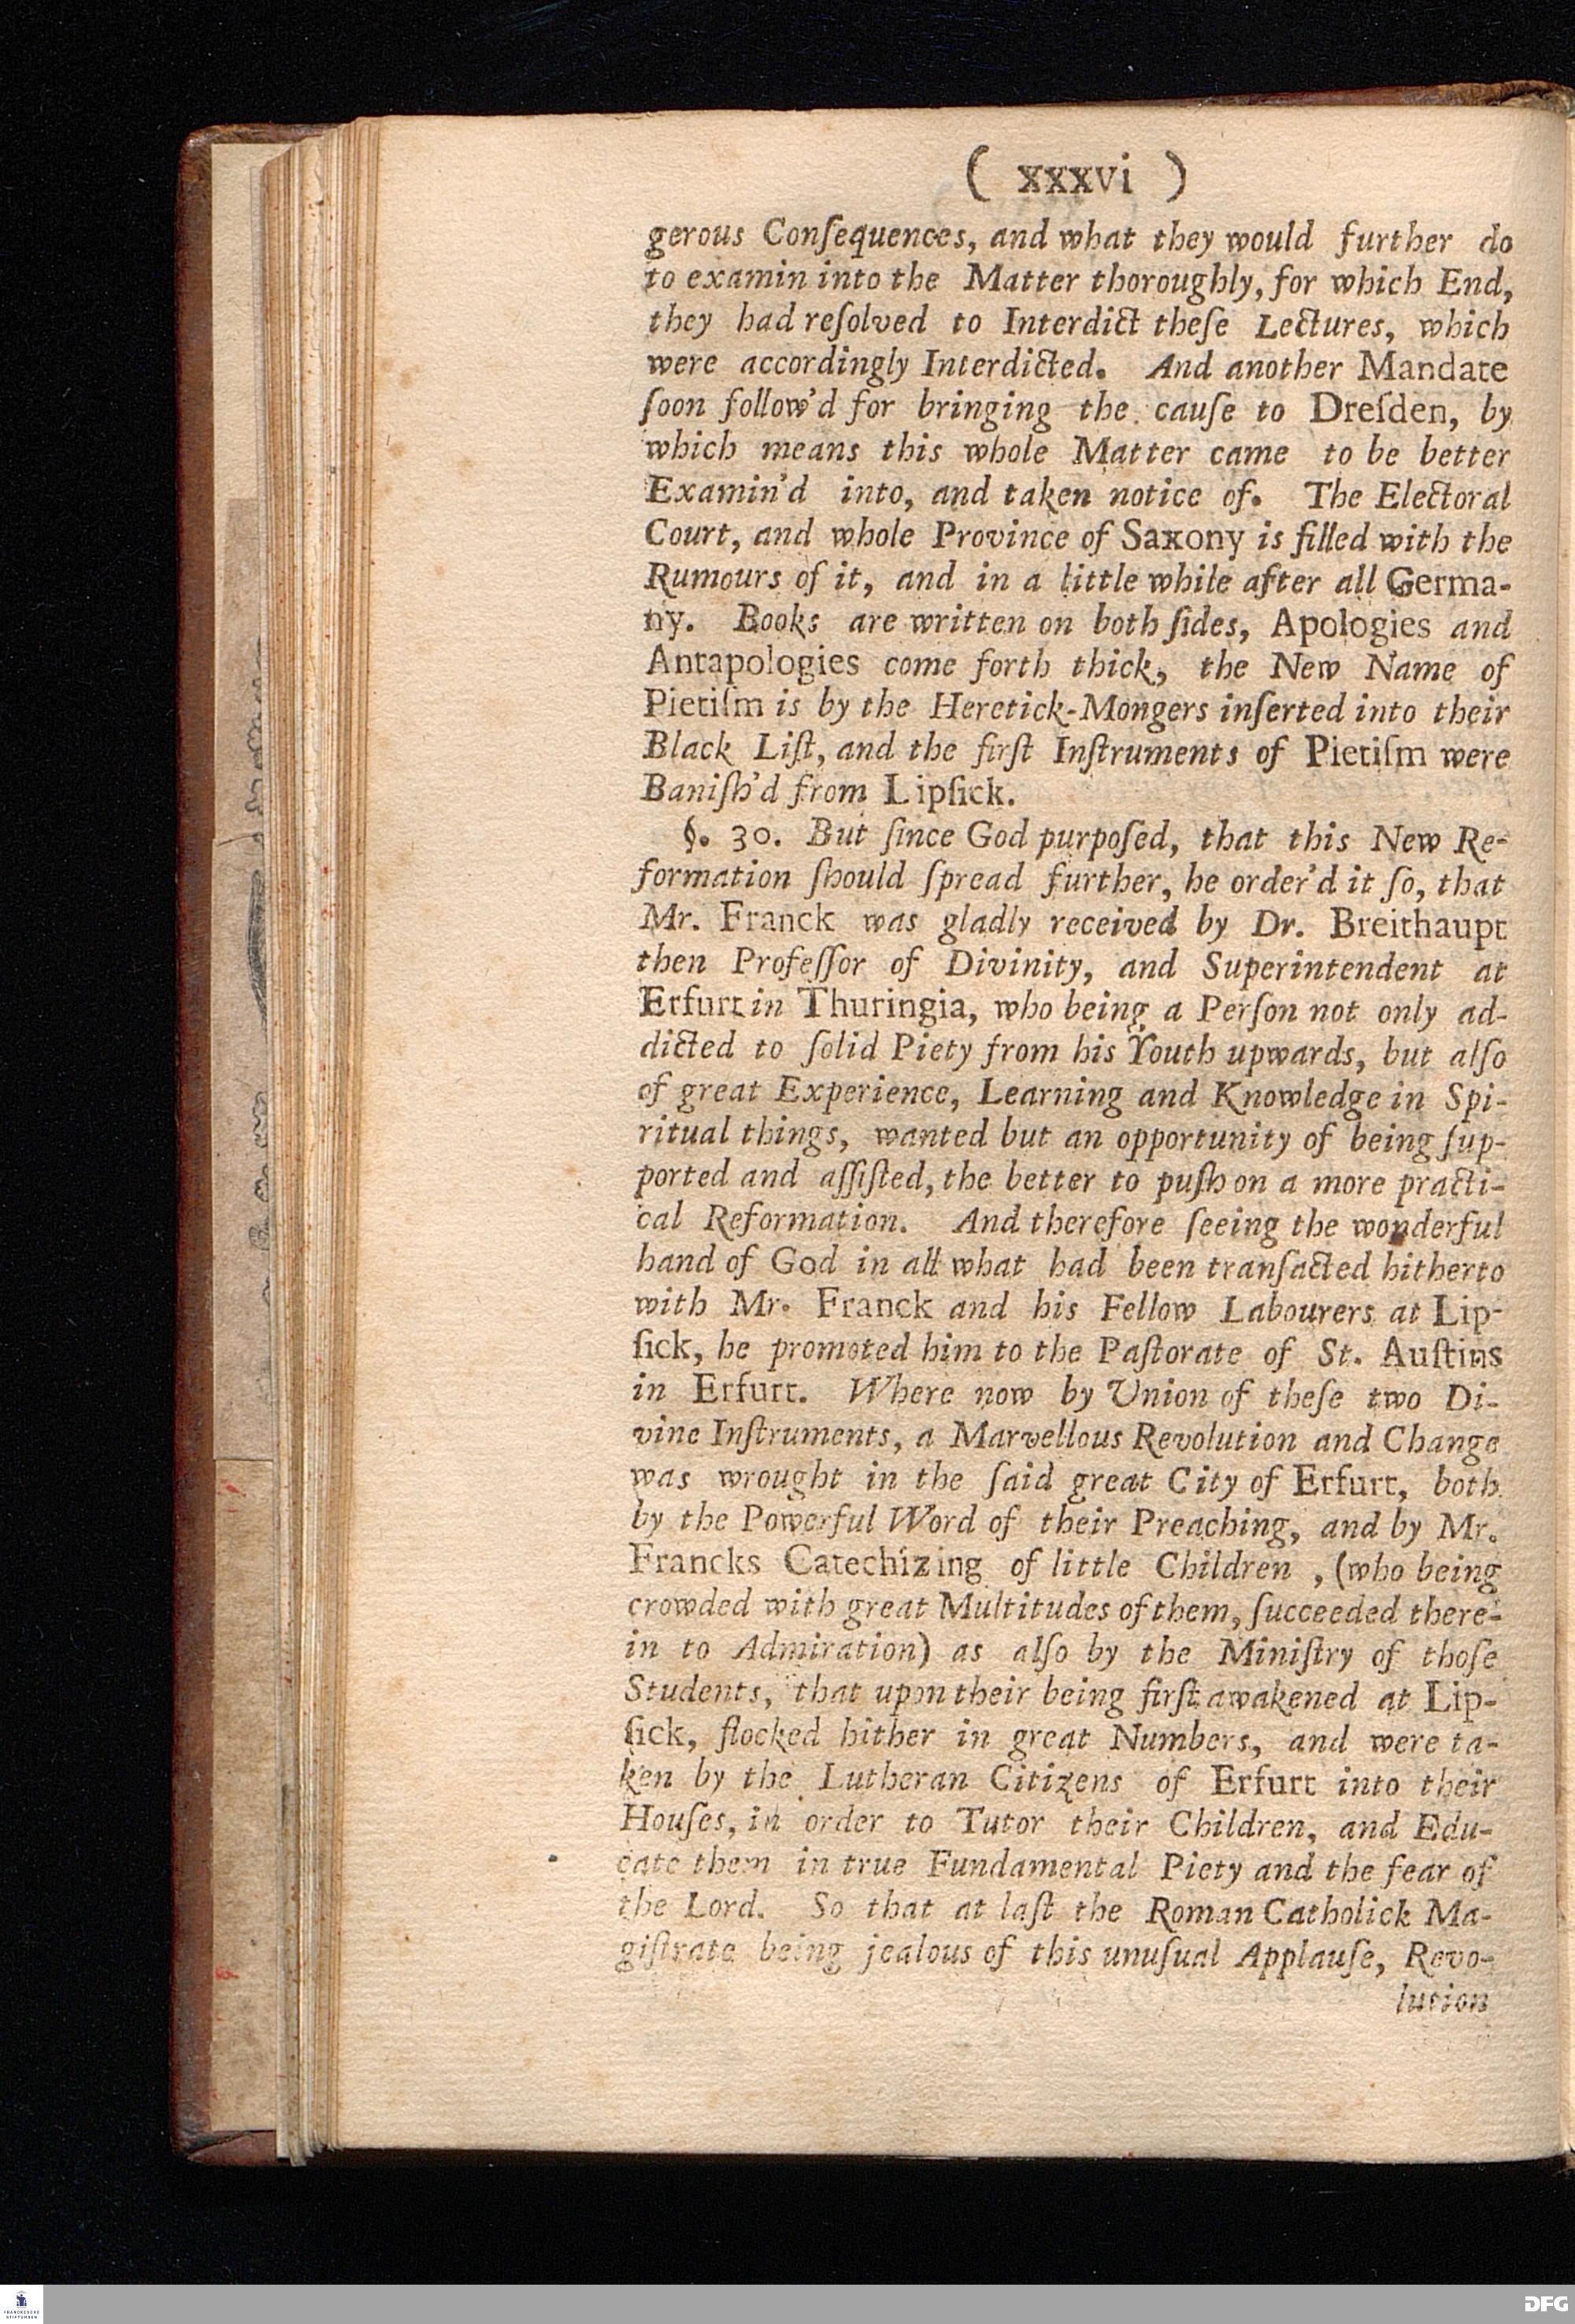 ( xxxvi )
gerous Conſequences, and what they would further do
to examin into the Matter thoroughly, for which End,
they had reſolved to Interdict theſe Lectures, which
were accordingly Interdicted. And another Mandate
ſoon follow'd for bringing the cauſe to Dreſden, by
which means this whole Matter came to be better
Examin'd into, and taken notice of. The Electoral
Court, and whole Province of Saxony is filled with the
Rumours of it, and in a little while after all Germa-
ny. Books are written on both ſides, Apologies and
Antapologies come forth thick, the New Name of
Pietiſm is by the Heretick-Mongers inſerted into their
Black Liſt, and the firſt Inſtruments of Pietiſm were
Baniſh'd from Lipſick.
§. 30. But ſince God purpoſed, that this New Re-
formation ſhould ſpread further, he order'd it ſo, that
Mr. Franck was gladly received by Dr. Breithaupt
then Profeſſor of Divinity, and Superintendent at
Erfurt in Thuringia, who being a Perſon not only ad-
dicted to ſolid Piety from his Youth upwards, but alſo
of great Experience, Learning and Knowledge in Spi-
ritual things, wanted but an opportunity of being ſup-
ported and aſſiſted, the better to puſh on a more practi-
cal Reformation. And therefore ſeeing the wonderful
hand of God in all what had been tranſacted hitherto
with Mr. Franck and his Fellow Labourers at Lip-
ſick, he promoted him to the Paſtorate of St. Auſtins
in Erfurt. Where now by Union of theſe two Di-
vine Inſtruments, a Marvellous Revolution and Change
was wrought in the ſaid great City of Erfurt, both
by the Powerful Word of their Preaching, and by Mr.
Francks Catechizing of little Children , (who being
crowded with great Multitudes of them, ſucceeded there-
in to Admiration) as alſo by the Miniſtry of thoſe
Students, that upon their being firſt awakened at Lip-
ſick, flocked hither in great Numbers, and were ta-
ken by the Lutheran Citizens of Erfurt into their
Houſes, in order to Tutor their Children, and Edu-
cate them in true Fundamental Piety and the fear of
the Lord. So that at laſt the Roman Catholick Ma-
giſtrate being jealous of this unuſual Applauſe, Revo-
lution
FRANCKESCHE
STIFTUNGEN
DFG